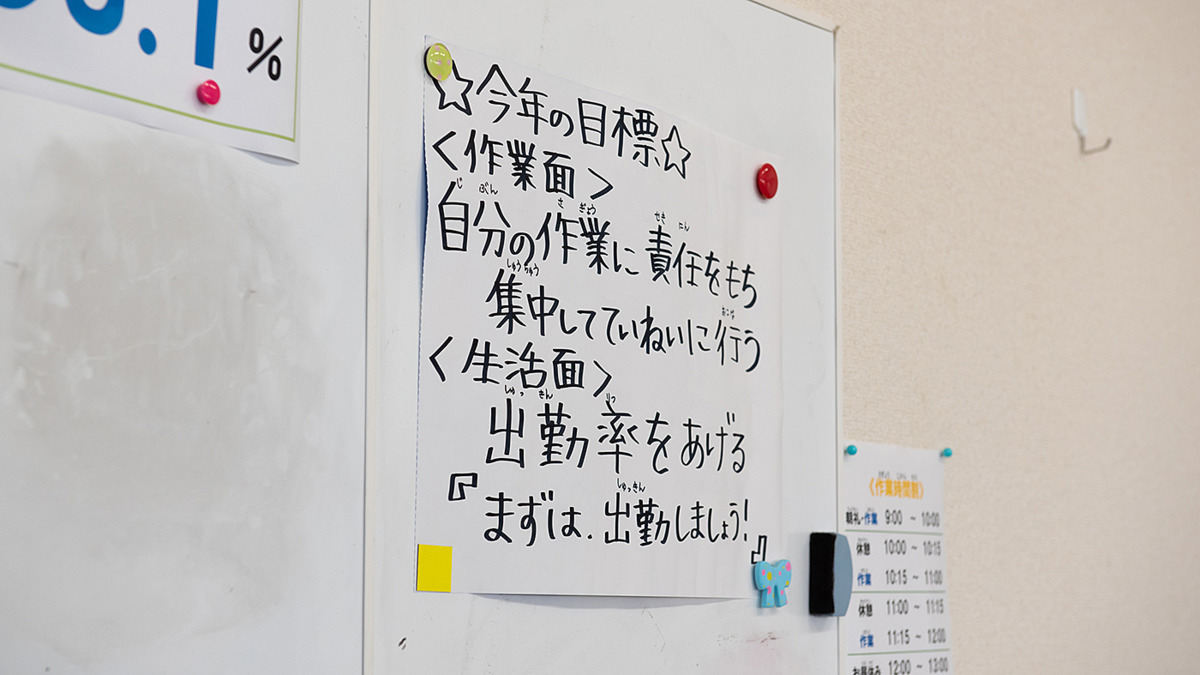 .1%
☆今年の目標☆
<作業面>
自分の作業に責任をもち
集中してていねいに行う
<生活面>
出勤率をあげる
『まずは、出勤しましょう!』
〈作業時間割〉
朝礼・作業 9:00 ~ 10:00
休憩 10:00 ~ 10:15
作業 10:15 ~ 11:00
休憩 11:00 ~ 11:15
作業 11:15 ~ 12:00
お昼休み 12:00 ~ 13:00